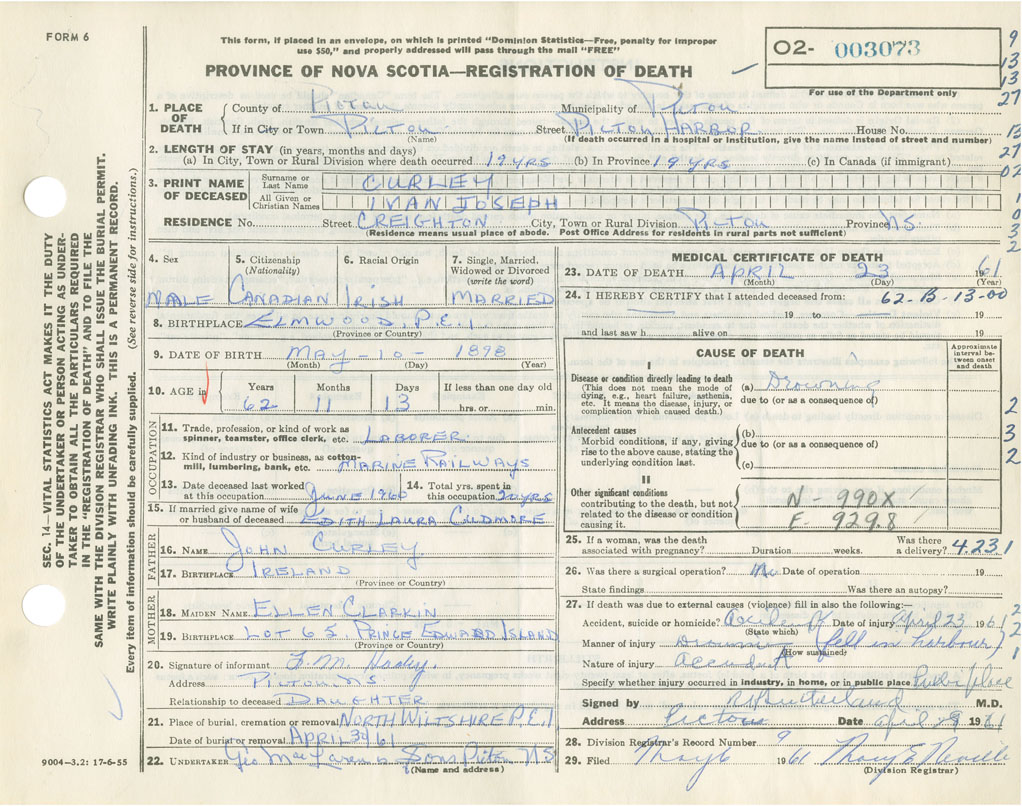 FORM 6
This form, if placed in an envelope, on which is printed "Dominion Statistics—Free, penalty for improper
use $50," and properly addressed will pass through the mail "FREE"
PROVINCE OF NOVA SCOTIA—REGISTRATION OF DEATH
02- 003073
For use of the Department only
9
13
13
27
13
27
02
1
0
3
2
1. PLACE OF DEATH
County of Pictou Municipality of Pictou
If in City or Town Pictou Street Pictou Harbor House No.
(Name) (If death occurred in a hospital or institution, give the name instead of street and number)
2. LENGTH OF STAY (in years, months and days)
(a) In City, Town or Rural Division where death occurred 19 yrs (b) In Province 19 yrs (c) In Canada (if immigrant)
3. PRINT NAME OF DECEASED
Surname or Last Name CURLEY
All Given or Christian Names IVAN JOSEPH
RESIDENCE No. Street CREIGHTON City, Town or Rural Division Pictou Province NS
(Residence means usual place of abode. Post Office Address for residents in rural parts not sufficient)
4. Sex 5. Citizenship (Nationality) 6. Racial Origin 7. Single, Married, Widowed or Divorced (write the word)
MALE CANADIAN IRISH MARRIED
8. BIRTHPLACE ELMWOOD, P.E.I
(Province or Country)
9. DATE OF BIRTH MAY - 10 - 1898
(Month) (Day) (Year)
10. AGE in Years Months Days If less than one day old
62 11 13 hrs. or min.
OCCUPATION
11. Trade, profession, or kind of work as
spinner, teamster, office clerk, etc. LABORER
12. Kind of industry or business, as cotton-
mill, lumbering, bank, etc. MARINE RAILWAYS
13. Date deceased last worked at this occupation June 1960 14. Total yrs. spent in this occupation 20 yrs
15. If married give name of wife
or husband of deceased EDITH LAURA CUDMORE
FATHER
16. NAME JOHN CURLEY
17. BIRTHPLACE IRELAND
(Province or Country)
MOTHER
18. MAIDEN NAME ELLEN CLARKIN
19. BIRTHPLACE LOT 65, PRINCE EDWARD ISLAND
(Province or Country)
20. Signature of informant
Address Pictou NS
Relationship to deceased DAUGHTER
21. Place of burial, cremation or removal NORTH WILTSHIRE P.E.I
Date of burial or removal APRIL /61
22. UNDERTAKER Geo MacLaren & Sons Pictou NS
(Name and address)
MEDICAL CERTIFICATE OF DEATH
23. DATE OF DEATH APRIL 23 1961
(Month) (Day) (Year)
24. I HEREBY CERTIFY that I attended deceased from: 62-B-13-00
19 to 19
and last saw h alive on 19
CAUSE OF DEATH
Approximate interval between onset and death
I
Disease or condition directly leading to death (a) Drowning
(This does not mean the mode of
dying, e.g., heart failure, asthenia,
etc. It means the disease, injury, or
complication which caused death.)
due to (or as a consequence of)
Antecedent causes
Morbid conditions, if any, giving
rise to the above cause, stating the
underlying condition last.
(b)
due to (or as a consequence of)
(c)
II
Other significant conditions
contributing to the death, but not
related to the disease or condition
causing it.
N - 990X
E - 929.8
2
3
2
25. If a woman, was the death
associated with pregnancy? Duration weeks. Was there a delivery? 4.23 1
26. Was there a surgical operation? No Date of operation 19
State findings Was there an autopsy?
27. If death was due to external causes (violence) fill in also the following:—
Accident, suicide or homicide? Accident Date of injury April 23 1961
(State which)
Manner of injury Drowning (fell in harbour)
(How sustained)
Nature of injury accident
Specify whether injury occurred in industry, in home, or in public place Public place
2
2
1
Signed by M.D.
Address Pictou Date April 1961
28. Division Registrar's Record Number 9
29. Filed May 6 1961
(Division Registrar)
SEC. 14—VITAL STATISTICS ACT MAKES IT THE DUTY
OF THE UNDERTAKER OR PERSON ACTING AS UNDER-
TAKER TO OBTAIN ALL THE PARTICULARS REQUIRED
IN THE "REGISTRATION OF DEATH" AND TO FILE THE
SAME WITH THE DIVISION REGISTRAR WHO SHALL ISSUE THE BURIAL PERMIT.
WRITE PLAINLY WITH UNFADING INK. THIS IS A PERMANENT RECORD.
Every item of information should be carefully supplied. (See reverse side for instructions.)
9004—3.2: 17-6-55